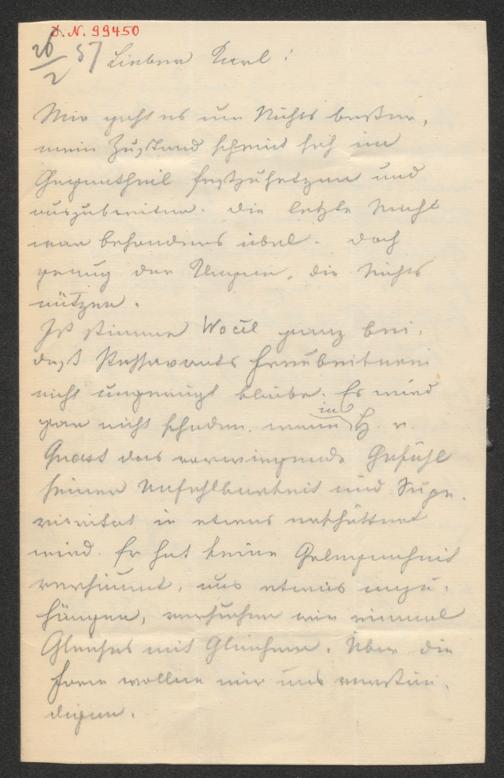 I. N. 99450
26/2 57 Lieber Karl!
Mir geht es um Nichts besser,
mein Zustand scheint sich im
Gegentheil festzusetzen und
auszubreiten. Die letzte Nacht
war besonders übel. Doch
genug der Klagen, die Nichts
nützen.
Ich stimme Wocel ganz bei,
daß Passavants
nicht ungerügt bleibe. Es wird
gar nicht schaden, wenn in H. v.
Quast das vorwiegende Gefühl
seiner Unfehlbarkeit und Supe-
riorität in etwas erschüttert
wird. Er hat keine Gelegenheit
versäumt, uns etwas anzu-
hängen, versuchen wir einmal
Gleiches mit Gleichem. Über die
Form wollen wir uns verstän-
digen.